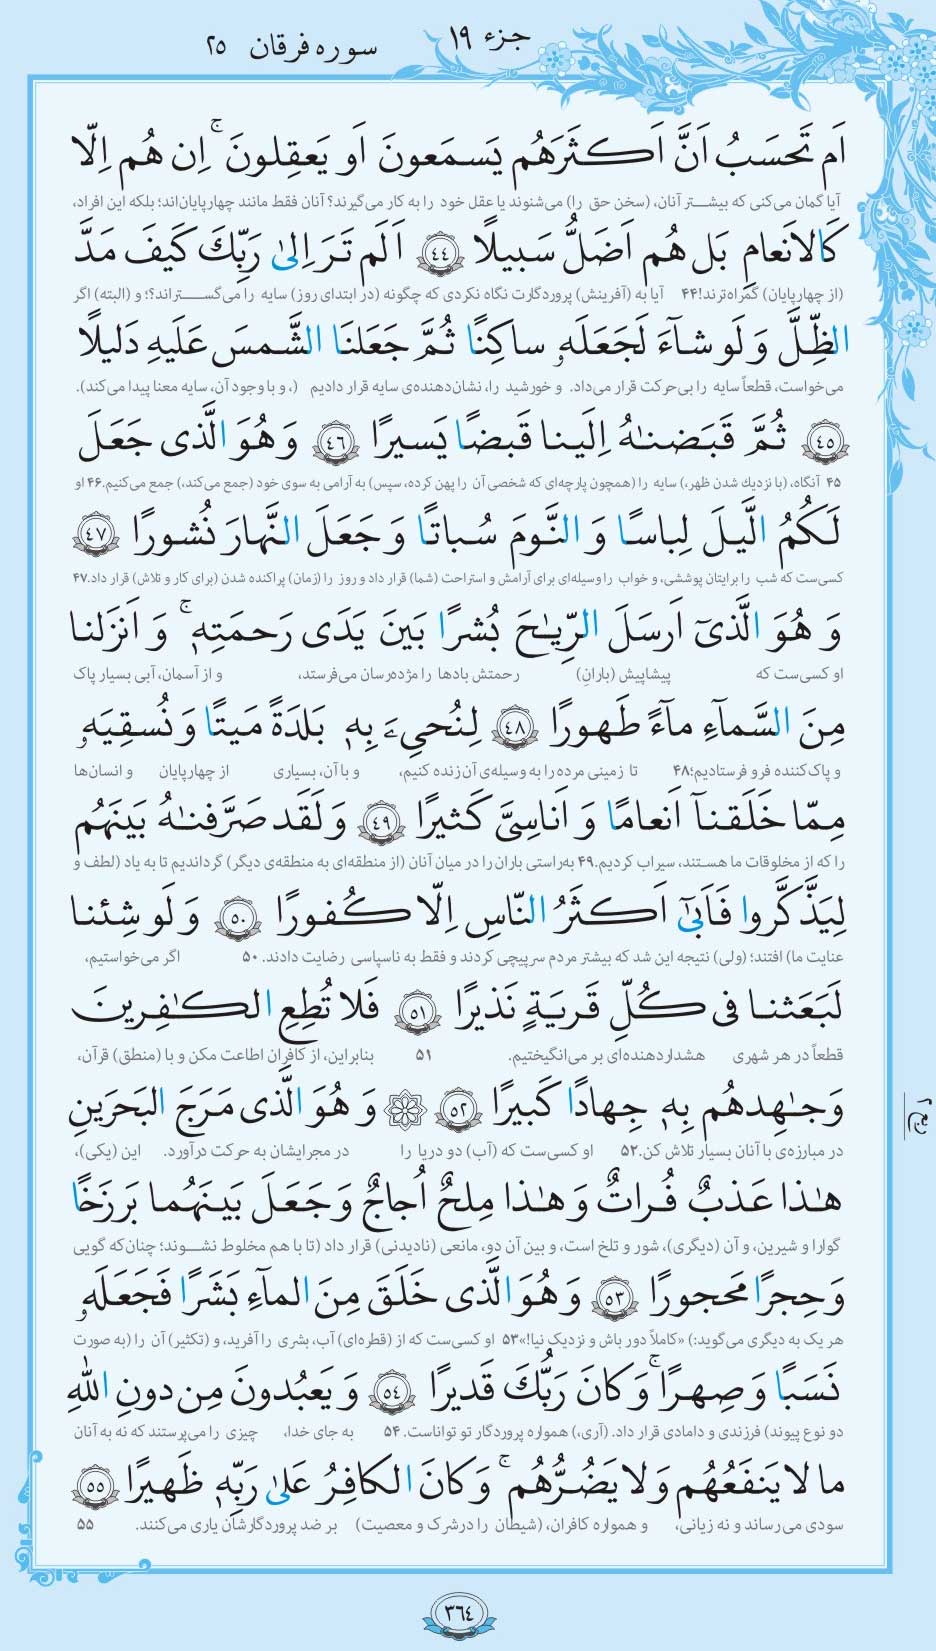 جزء ۱۹
سوره فرقان ۲۵
اَم تَحسَبُ اَنَّ اَکثَرَهُم یَسمَعونَ اَو یَعقِلونَ ۚ اِن هُم اِلّا
آیا گمان می‌کنی که بیشتر آنان، (سخن حق را) می‌شنوند یا عقل خود را به کار می‌گیرند؟ آنان فقط مانند چهارپایان‌اند؛ بلکه این افراد،
کَالاَنعامِ بَل هُم اَضَلُّ سَبیلًا ﴿۴۴﴾ اَلَم تَرَ اِلیٰ رَبِّكَ کَیفَ مَدَّ
(از چهارپایان) گمراه‌ترند! ۴۴ آیا به (آفرینش) پروردگارت نگاه نکردی که چگونه (در ابتدای روز) سایه را می‌گستراند؟؛ و (البته) اگر
الظِّلَّ وَ لَو شاءَ لَجَعَلَهٗ ساکِنًا ثُمَّ جَعَلنَا الشَّمسَ عَلَیهِ دَلیلًا
می‌خواست، قطعاً سایه را بی‌حرکت قرار می‌داد. و خورشید را، نشان‌دهنده‌ی سایه قرار دادیم (، و با وجود آن، سایه معنا پیدا می‌کند).
﴿۴۵﴾ ثُمَّ قَبَضنٰهُ اِلَینا قَبضًا یَسیرًا ﴿۴۶﴾ وَ هُوَ الَّذی جَعَلَ
۴۵ آنگاه، (با نزدیك شدن ظهر،) سایه را (همچون پارچه‌ای که شخصی آن را پهن کرده، سپس) به آرامی به سوی خود (جمع می‌کند،) جمع می‌کنیم. ۴۶ او
لَکُمُ الَّیلَ لِباسًا وَ النَّومَ سُباتًا وَ جَعَلَ النَّهارَ نُشورًا ﴿۴۷﴾
کسی‌ست که شب را برایتان پوششی، و خواب را وسیله‌ای برای آرامش و استراحت (شما) قرار داد و روز را (زمان) پراکنده شدن (برای کار و تلاش) قرار داد. ۴۷
وَ هُوَ الَّذیٓ اَرسَلَ الرِّیٰحَ بُشرًا بَینَ یَدَی رَحمَتِهٖ ۚ وَ اَنزَلنا
او کسی‌ست که پیشاپیش (بارانِ) رحمتش بادها را مژده‌رسان می‌فرستد، و از آسمان، آبی بسیار پاک
مِنَ السَّمآءِ مآءً طَهورًا ﴿۴۸﴾ لِنُحیِۦَ بِهٖ بَلدَةً مَیتًا وَ نُسقِیَهٗ
و پاک‌کننده فرو فرستادیم؛ ۴۸ تا زمینی مرده را به وسیله‌ی آن زنده کنیم، و با آن، بسیاری از چهارپایان و انسان‌ها
مِمّا خَلَقنآ اَنعامًا وَ اَناسِیَّ کَثیرًا ﴿۴۹﴾ وَ لَقَد صَرَّفنٰهُ بَینَهُم
را که از مخلوقات ما هستند، سیراب کردیم. ۴۹ به‌راستی باران را در میان آنان (از منطقه‌ای به منطقه‌ی دیگر) گرداندیم تا به یاد (لطف و
لِیَذَّکَّروا فَاَبیٰٓ اَکثَرُ النّاسِ اِلّا کُفورًا ﴿۵۰﴾ وَ لَو شِئنا
عنایت ما) افتند؛ (ولی) نتیجه این شد که بیشتر مردم سرپیچی کردند و فقط به ناسپاسی رضایت دادند. ۵۰ اگر می‌خواستیم،
لَبَعَثنا فی کُلِّ قَریَةٍ نَذیرًا ﴿۵۱﴾ فَلا تُطِعِ الکٰفِرینَ
قطعاً در هر شهری هشداردهنده‌ای بر می‌انگیختیم. ۵۱ بنابراین، از کافران اطاعت مکن و با (منطق) قرآن،
وَ جٰهِدهُم بِهٖ جِهادًا کَبیرًا ﴿۵۲﴾ ۞ وَ هُوَ الَّذی مَرَجَ البَحرَینِ
در مبارزه‌ی با آنان بسیار تلاش کن. ۵۲ او کسی‌ست که (آب) دو دریا را در مجرایشان به حرکت درآورد. این (یکی)،
هٰذا عَذبٌ فُراتٌ وَ هٰذا مِلحٌ اُجاجٌ وَ جَعَلَ بَینَهُما بَرزَخًا
گوارا و شیرین، و آن (دیگری)، شور و تلخ است، و بین آن دو، مانعی (نادیدنی) قرار داد (تا با هم مخلوط نشوند؛ چنان‌که گویی
وَ حِجرًا مَحجورًا ﴿۵۳﴾ وَ هُوَ الَّذی خَلَقَ مِنَ المآءِ بَشَرًا فَجَعَلَهٗ
هر یک به دیگری می‌گوید:) «کاملاً دور باش و نزدیک نیا!» ۵۳ او کسی‌ست که از (قطره‌ای) آب، بشری را آفرید، و (تکثیر) آن را (به صورت
نَسَبًا وَ صِهرًا ۚ وَ کانَ رَبُّكَ قَدیرًا ﴿۵۴﴾ وَ یَعبُدونَ مِن دونِ اللّٰهِ
دو نوع پیوند) فرزندی و دامادی قرار داد. (آری،) همواره پروردگار تو تواناست. ۵۴ به جای خدا، چیزی را می‌پرستند که نه به آنان
ما لا یَنفَعُهُم وَ لا یَضُرُّهُم ۚ وَ کانَ الکافِرُ عَلیٰ رَبِّهٖ ظَهیرًا ﴿۵۵﴾
سودی می‌رساند و نه زیانی، و همواره کافران، (شیطان را در شرک و معصیت) بر ضد پروردگارشان یاری می‌کنند. ۵۵
۳۶۴